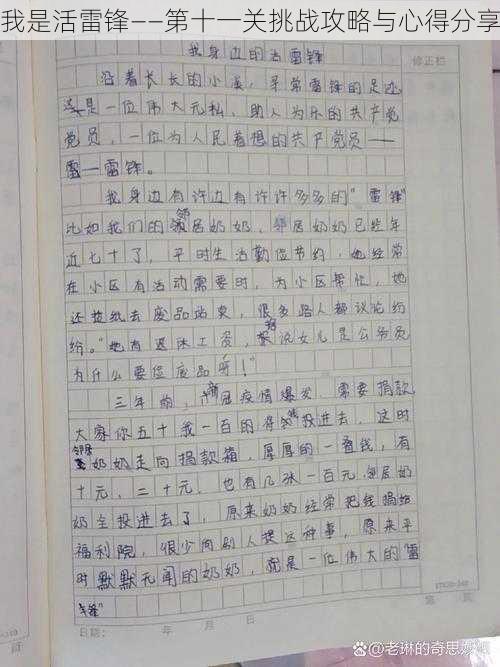 我是活雷锋——第十一关挑战攻略与心得分享
我身边的活雷锋
修正栏
沿着长长的小溪，寻常雷锋的足迹
这是一位伟大无私、助人为乐的共产党
党员，一位为人民着想的共产党员——
雷—雷锋。
我身边有许边有许许多多的"雷锋"
比如我们的邻居奶奶，邻居奶奶已经年
近七十了，平时生活勤俭节约，她经常
在小区有活动需要时，为小区帮忙，她
还捡纸去废品站卖，很多路人都议论纷
纷。"她有退休工资，据说女儿是公务员
为什么要捡废品呀！"
三年前，新冠疫情爆发，需要捐款
大家你五十我一百的得投进去，这时
邻居奶奶走向捐款箱，厚厚的一叠钱，有
十元、二十元、也有几张一百元，邻居奶
奶全投进去了，原来奶奶经常把钱捐给
福利院，很少向别人提这种事，原来平
时默默无闻的奶奶，就是一位伟大的"雷
锋"
日期： 年 月 日
第 页
@老琳的奇思妙想